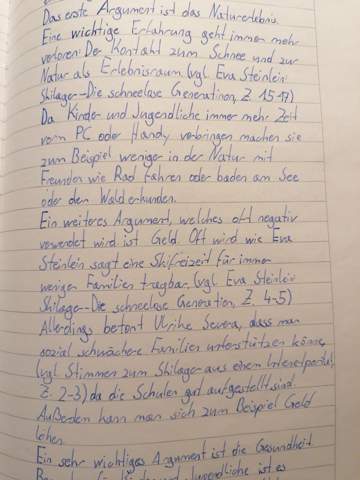 Das erste Argument ist das Naturerlebnis.
Eine wichtige Erfahrung geht immer mehr
verloren: Der Kontakt zum Schnee und zur
Natur als Erlebnisraum (vgl. Eva Steinlein
Skilager-Die schneelose Generation, Z. 15-17)
Da Kinder und Jugendliche immer mehr Zeit
vorm PC oder Handy verbringen machen sie
zum Beispiel weniger in der Natur mit
Freunden wie Rad fahren oder baden am See
oder den Wald erkunden.
Ein weiteres Argument, welches oft negativ
verwendet wird ist Geld. Oft wird wie Eva
Steinlein sagt eine Skifreizeit für immer
weniger Familien tragbar (vgl. Eva Steinlein
Skilager-Die schneelose Generation, Z. 4-5)
Allerdings betont Ulrike Severa, dass man
sozial schwächere Familien unterstützen könne
(vgl. Stimmen zum Skilager aus einem Internetportal
Z. 2-3) da die Schulen gut aufgestellt sind.
Außerdem kann man sich zum Beispiel Geld
leihen.
Ein sehr wichtiges Argument ist die Gesundheit
Jugendliche ist es